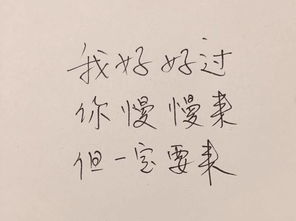 我好好过
你慢慢来
但一定要来